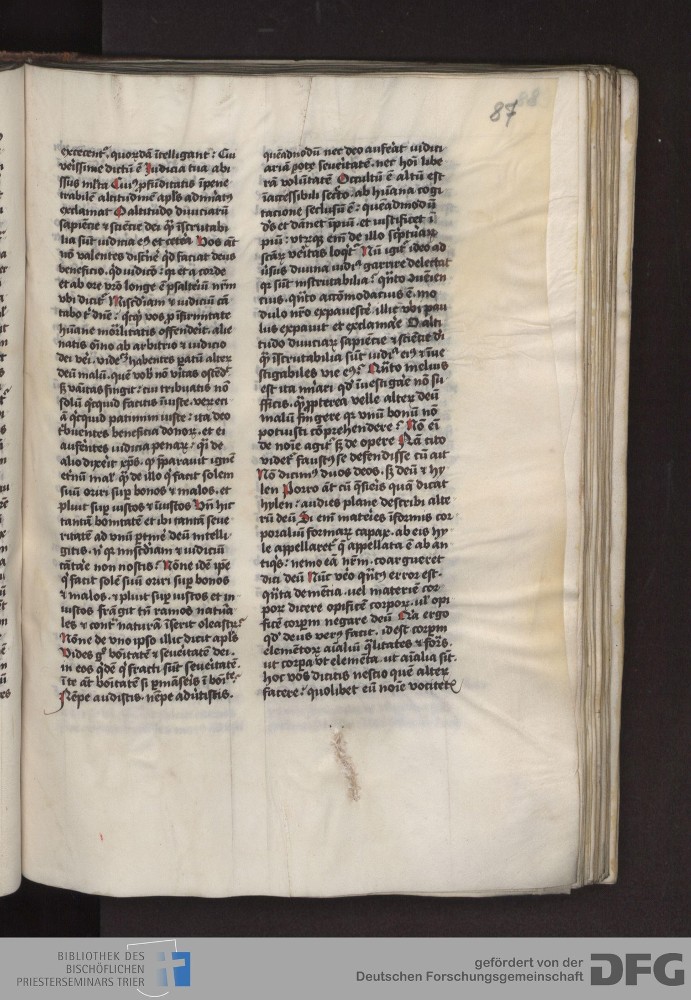 87 88
excecent᷑. quordā ītelligant: Cui
verissime dictū ē Iudicia tua abi
ssus m̄lta Cuiꝰ ꝓfūditatis īpene
trabilē altitudinē apl̄s admiratꝰ
exclamat O altitudo diuiciarū
sapiēcie ⁊ sciēcie dei. q̄ īscrutabi
lia sūt iudicia eiꝰ et cetera Vos aūt
nō valentes discn̄e qd̄ faciat deus
beneficio. qd̄ iudicō: qꝛ et a corde
et ab ore vr̄o longe ē psalteriū nr̄m
vbi dicit᷑ Misc̄diam ⁊ iudiciū cā
tabo t̄ dn̄e: q̄cq̄ vos ꝓ īfirmitate
hūane mōrlitatis offendeĩt. alie
natis om̄o ab arbitrio ⁊ iudicio
dei veri. vidēꝰ habentes ꝑatū alterꝝ
deū malū. quē vob̄ nō vītas ostēd᷑
ſꝫ vāitas fīngit: cui tribuatis nō
solū q̄cquid facitis īiuste. verꝫ eti
ā q̄cquid patimini iuste: ita deo
t̄buentes beneficia donoꝝ. et ei
auferētes iudicia penaꝝ: q̄i de
alio dixeĩt xp̄s. ꝙ p̄parauit ignē
et̄nū mal. q̄ de illo q̄ facit solem
suū oriri suꝑ bonos ⁊ malos. et
pluit suꝑ iustos ⁊ īiustos Vn̄ hic
tantā bonitatē et ibi tantā seue
ritatē ad vnū ꝑtīnē deū intelli
gitis. n̄ qꝛ misc̄diam ⁊ iudiciū
cātāe non nostis: Nōne idē ip̄e
q̄ facit solē suū oriri suꝑ bonos
⁊ malos. ⁊ pluit suꝑ iustos et in
iustos frāgit tn̄ ramos natura
les ⁊ cont̄ naturā īserit oleastꝝ:
Nōne de vno ipso illic dicit apl̄s
Vides gͦ boītatē ⁊ seueītatē dei.
in eos qdē q̄ fracti sūt seueītatē.
ī te aūt boītatē si ꝑmāseīs ī boīte:
Nēpe audistis. nēpe aduītistis.
quēadmodū nec deo aufert iudici
ariā ꝑotꝫ seueitatē. nec hoi libe
rā volūtatē Occultū ē altū est
īaccessibili secͬto. ab hūana cogi
tacione seclusū ē: quēadmodū
d̄s et dānet īpiū. et iustificet ī
piū: vtrūqꝫ em̄ de illo sc̄pturaꝝ
sc̄aꝝ veritas loqt᷑ Nū igit᷑ ideo ad
ūsus diuina iudīꝰ garrire delectat
qꝛ sūt inscrutabilia: q̄nto ꝯuēien
cius. q̄nto accōmodacius ē. mo
dulo nr̄o expauescē. illic vbi pau
lus expauit et exclamāe O alti
tudo diuiciaꝝ sapiēcie ⁊ sciēcie dī
q̄ īscrutabilia sūt iudīꝰ eiꝰ ⁊ īiue
stigabiles vie eiꝰ: Quāto melius
est ita mīari qd̄ īuestigāe nō su
fficis. q̄ꝫ ꝓpterea velle alterꝝ deū
malū fingere qꝛ vnū bonū nō
potuisti cōprehendere: Nō em̄
de noīe agit᷑ ſꝫ de opere Nā cito
videt᷑ faustꝰ se defendisse cū ait
Nō dicimꝰ duos deos. ſꝫ deū ⁊ hy
len Porro aūt cū q̄sieis quā dicat
hylen: audies plane describi alte
rū deū Si em̄ materies īformis cor
poraliū formaꝝ capax. ab eis hy
le appellaret᷑ q̄ appellata ē ab an
tiqͥs: nemo eā nr̄m. coargueret
dici deū Nūc vēo qn̄tꝰ error est.
qn̄ta demētia. uel materiē cor
poꝝ dicere opificē corpoꝝ. ul᷑ opi
ficē corpm negare deū Cū ergo
qd̄ deus verꝰ facit. id est corpm
elementoꝝ aīaliū q̄litates ⁊ forīs.
ut corpa vt elemēta. ut aīalia sīt.
hoc vos dicitis nescio quē alterꝝ
facere: quolibet eū noīe vocitetꝭ
BIBLIOTHEK DES
BISCHÖFLICHEN
PRIESTERSEMINARS TRIER
gefördert von der
Deutschen Forschungsgemeinschaft
DFG